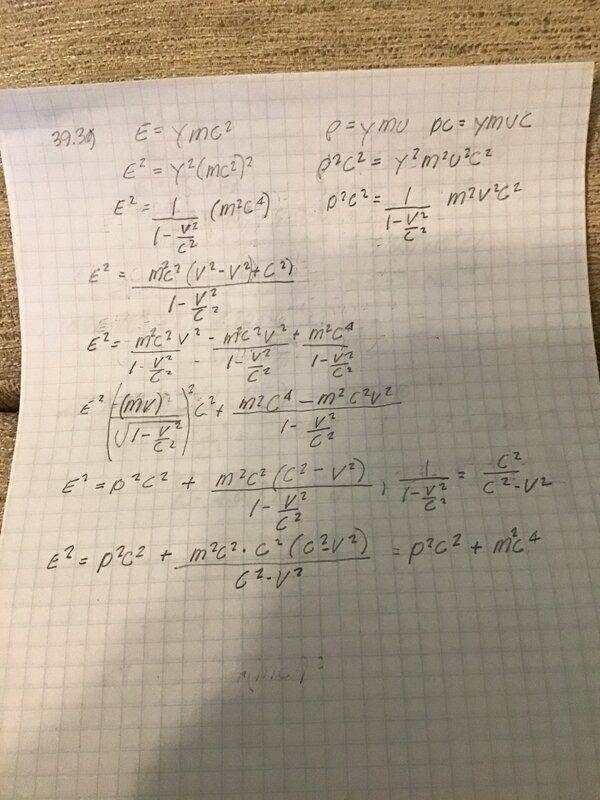 39.39 E = γmc² p = γmv pc = γmvc
E² = γ²(mc²)² p²c² = γ²m²v²c²
E² = 1/(1 - v²/c²) (m²c⁴) p²c² = 1/(1 - v²/c²) m²v²c²
E² = m²c²(v² - v² + c²)/(1 - v²/c²)
E² = m²c²v²/(1 - v²/c²) - m²c²v²/(1 - v²/c²) + m²c⁴/(1 - v²/c²)
E² ((mv)/√(1 - v²/c²))² c² + (m²c⁴ - m²c²v²)/(1 - v²/c²)
E² = p²c² + m²c²(c² - v²)/(1 - v²/c²) , 1/(1 - v²/c²) = c²/(c² - v²)
E² = p²c² + m²c² · c²(c² - v²)/(c² - v²) = p²c² + m²c⁴